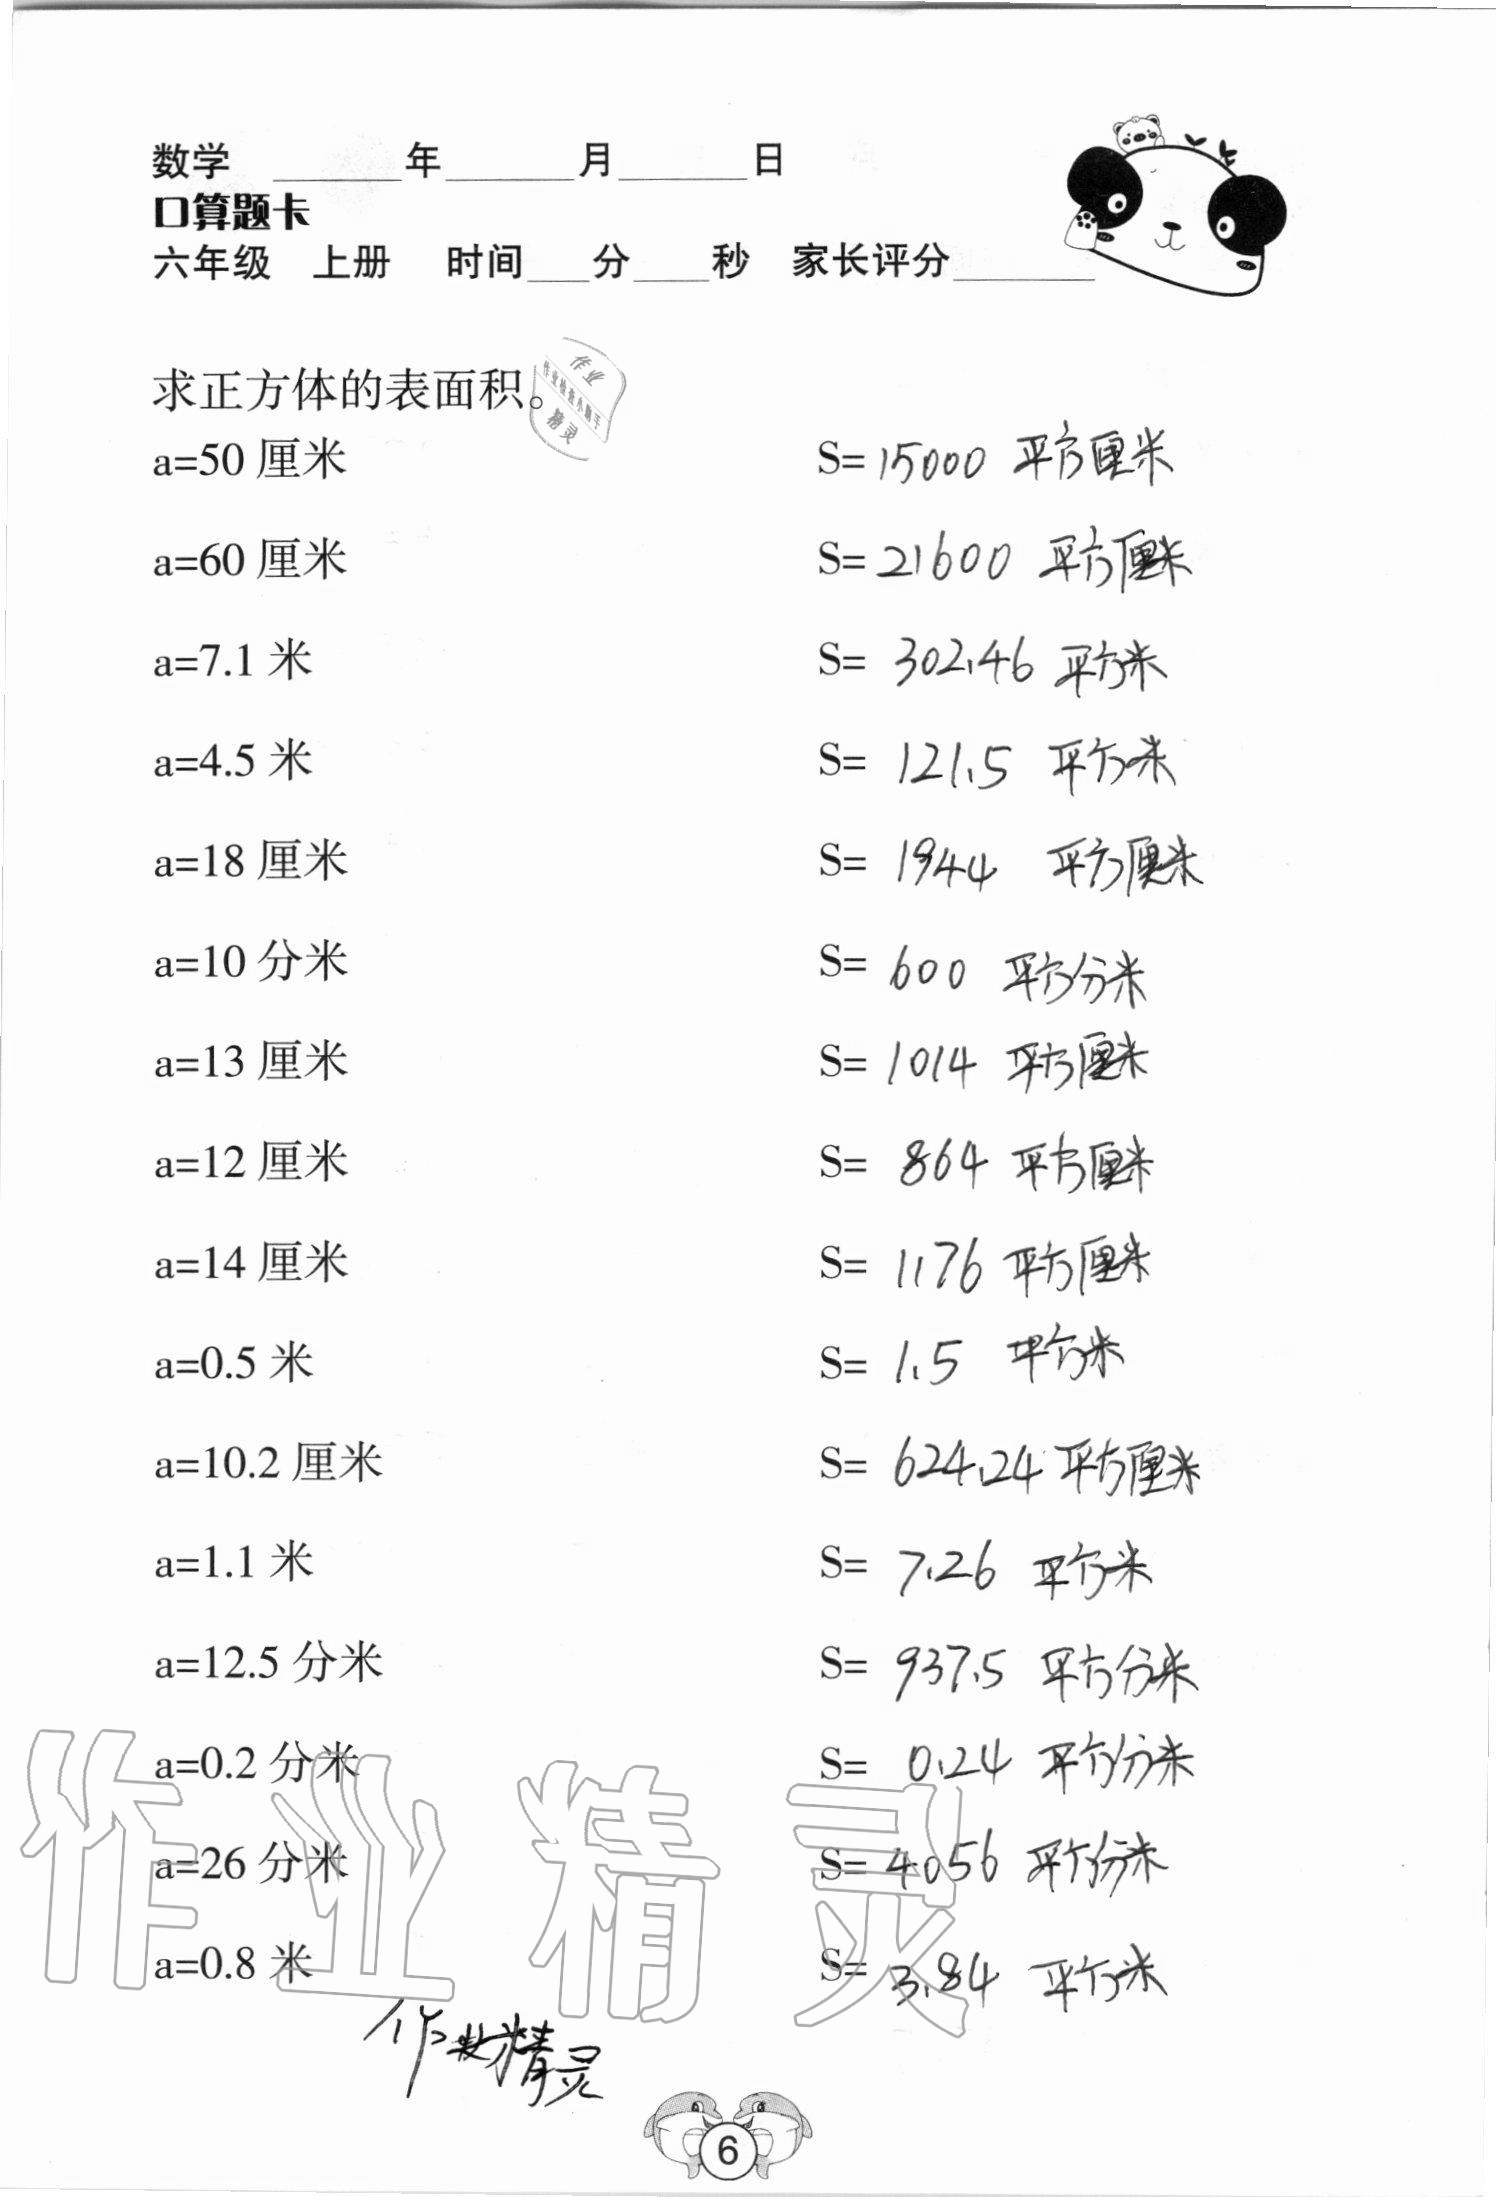 数学 ______年______月______日
口算题卡
六年级 上册 时间___分___秒 家长评分______
求正方体的表面积。
作业
作业检查小助手
精灵
a=50 厘米 S= 15000 平方厘米
a=60 厘米 S= 21600 平方厘米
a=7.1 米 S= 302.46 平方米
a=4.5 米 S= 121.5 平方米
a=18 厘米 S= 1944 平方厘米
a=10 分米 S= 600 平方分米
a=13 厘米 S= 1014 平方厘米
a=12 厘米 S= 864 平方厘米
a=14 厘米 S= 1176 平方厘米
a=0.5 米 S= 1.5 平方米
a=10.2 厘米 S= 624.24 平方厘米
a=1.1 米 S= 7.26 平方米
a=12.5 分米 S= 937.5 平方分米
a=0.2 分米 S= 0.24 平方分米
a=26 分米 S= 4056 平方分米
作业精灵
a=0.8 米 S= 3.84 平方米
作业精灵
6